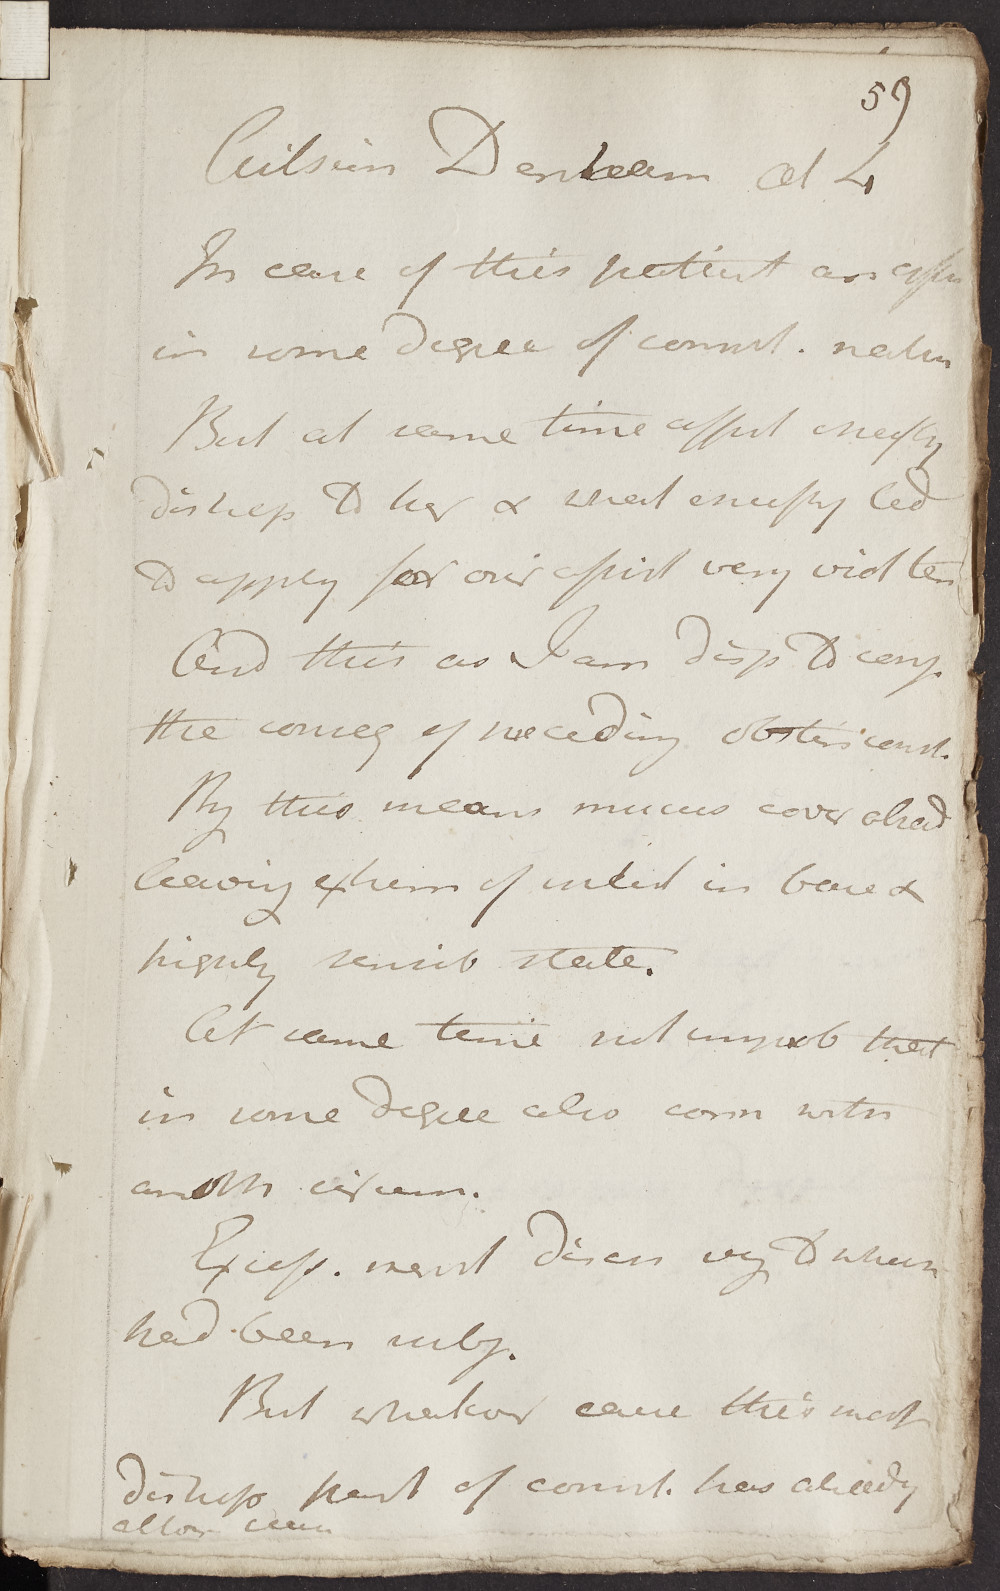 59
Denham Æt L
In case of this patient an affn
in some degree of comnt. natur
But at same time affect chiefly
distress to her & what chiefly led
to apply for our assist very viol ten
And this as I am disp to conj.
the conseq of preceding obstin const.
By this means mucus cover abrad
leaving extrem of intest in bare &
highly sensib state.
At same time not improb that
in some degree also conn with
anoth circum.
Excess. menst disch to whch
had been subj.
But whatever cause this most
distress part of comnt. has already